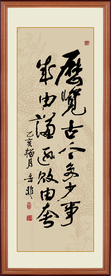 歷覽古今多少事
成由謙遜敗由奢
乙亥臘月